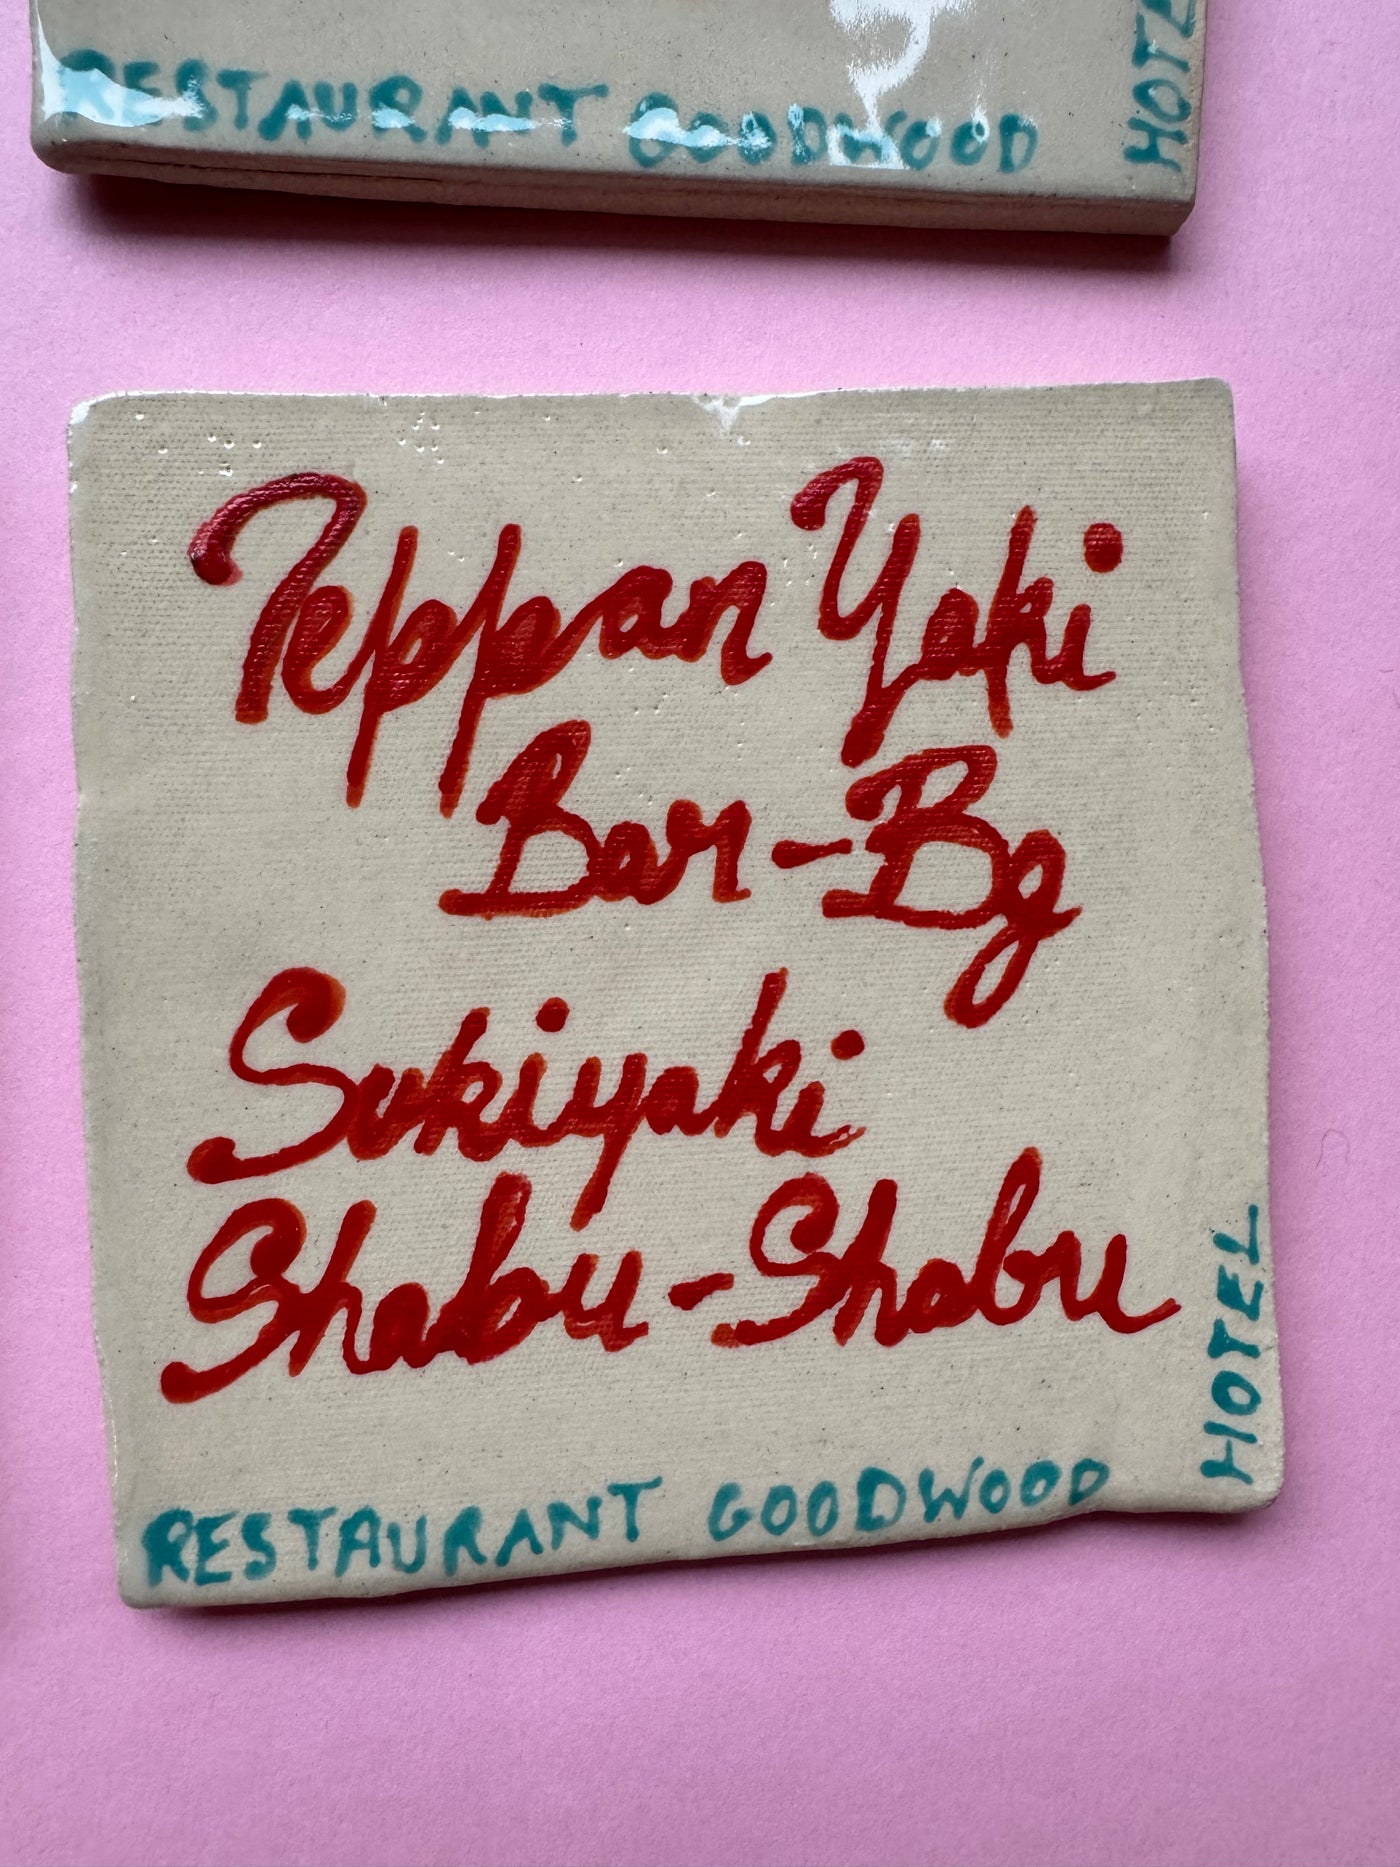 RESTAURANT GOODWOOD
HOTE
Teppan Yaki
Bar-Bq
Sukiyaki
Shabu-Shabu
HOTEL
RESTAURANT GOODWOOD